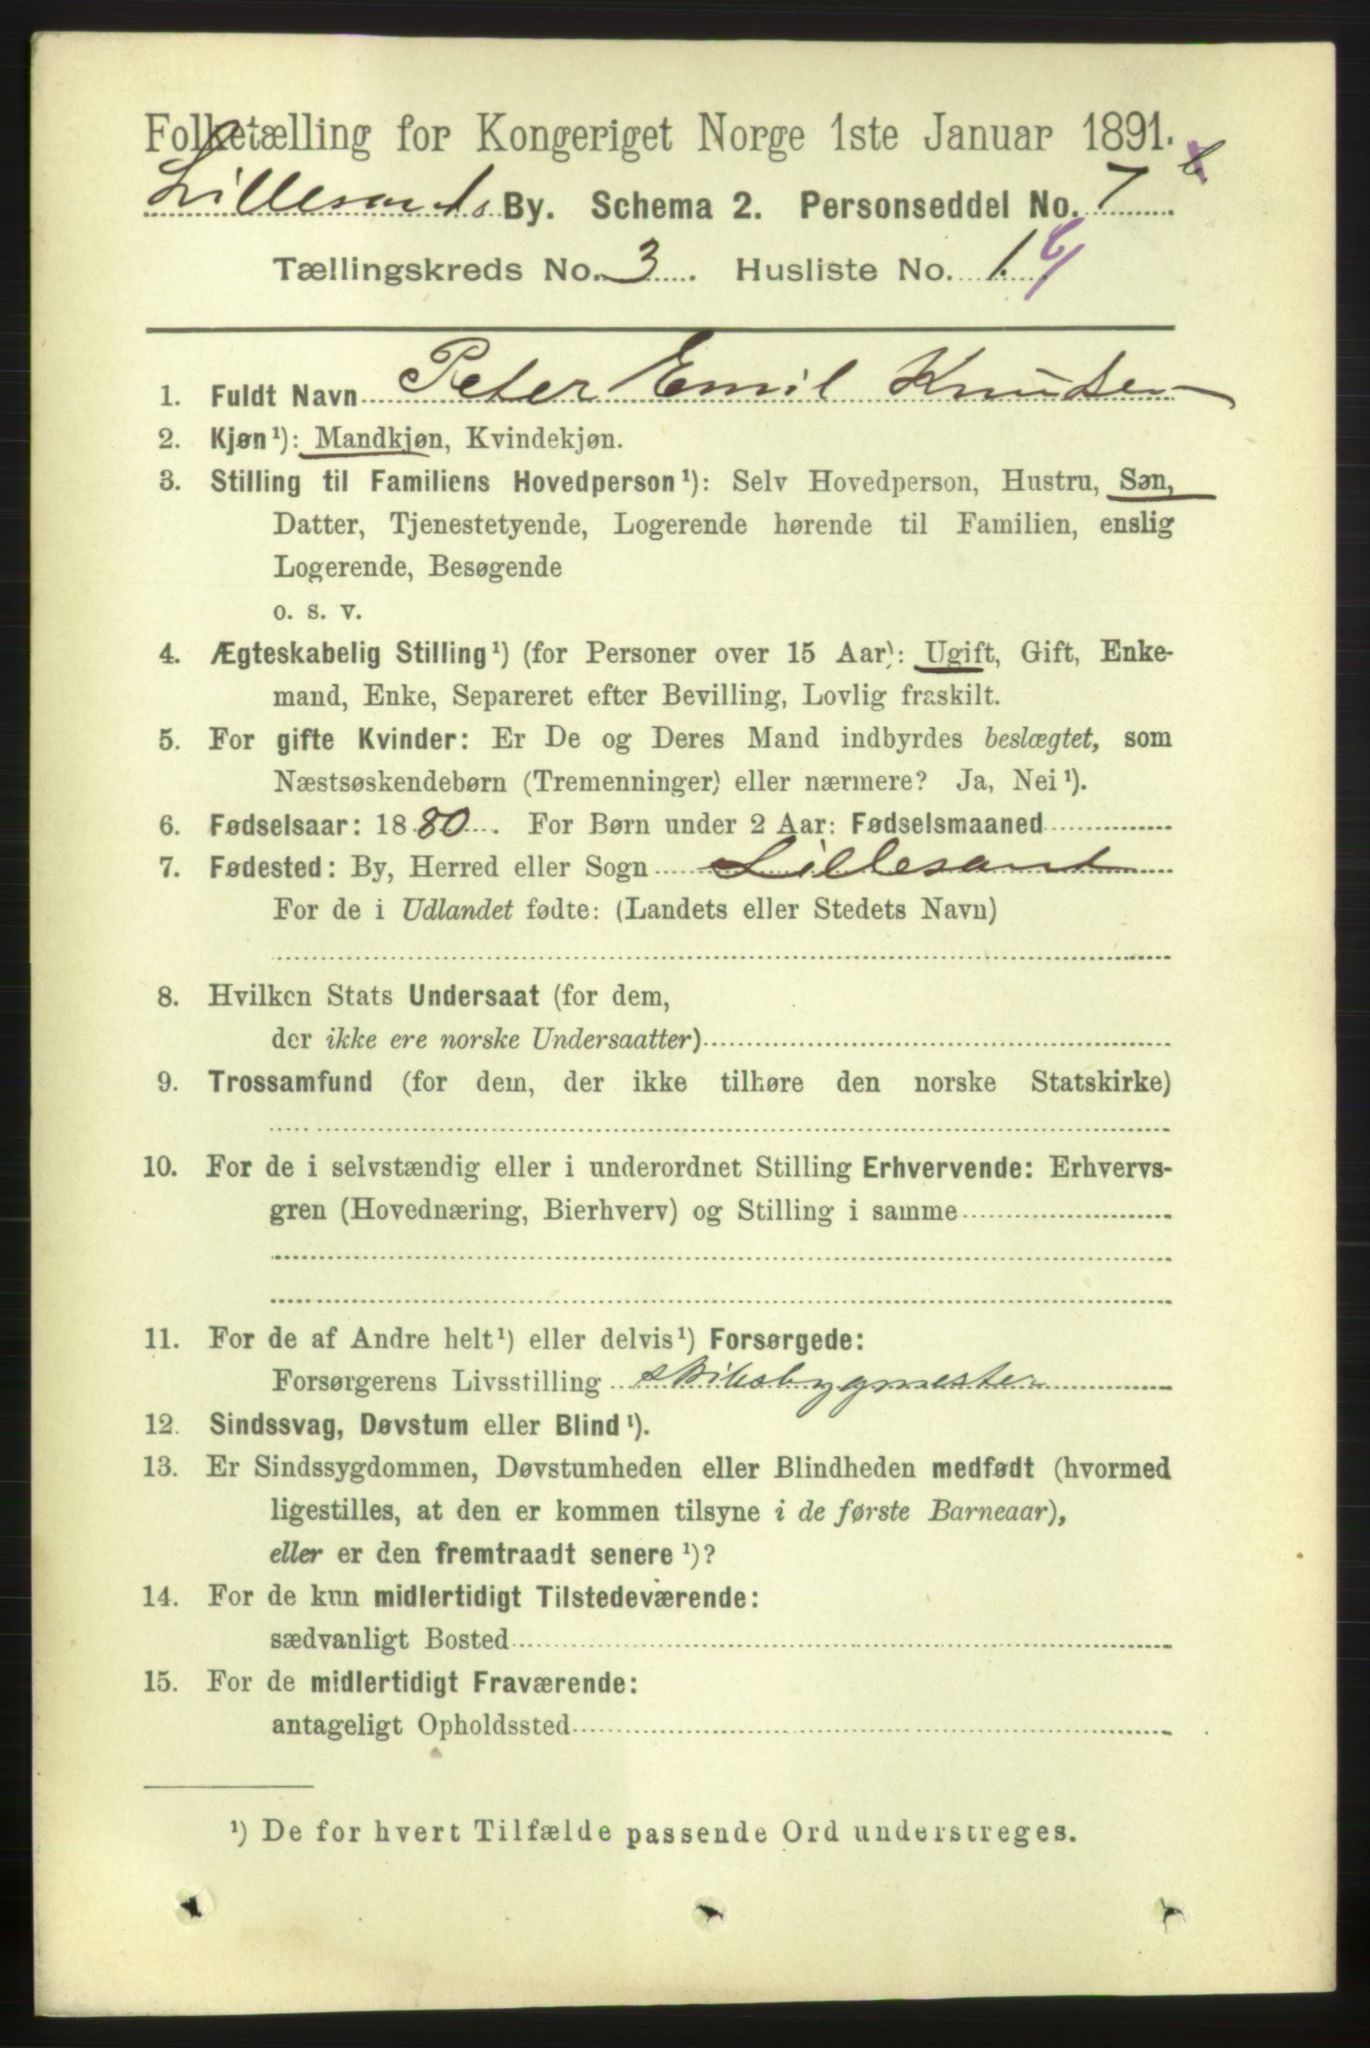 Folketælling for Kongeriget Norge 1ste Januar 1891.
Lillesands By. Schema 2. Personseddel No. 7 b
Tællingskreds No. 3. Husliste No. 1.
1. Fuldt Navn Peter Emil Knudsen
2. Kjøn¹): Mandkjøn, Kvindekjøn.
3. Stilling til Familiens Hovedperson¹): Selv Hovedperson, Hustru, Søn,
Datter, Tjenestetyende, Logerende hørende til Familien, enslig
Logerende, Besøgende
o. s. v.
4. Ægteskabelig Stilling¹) (for Personer over 15 Aar): Ugift, Gift, Enke-
mand, Enke, Separeret efter Bevilling, Lovlig fraskilt.
5. For gifte Kvinder: Er De og Deres Mand indbyrdes beslægtet, som
Næstsøskendebørn (Tremenninger) eller nærmere? Ja, Nei¹).
6. Fødselsaar: 1880. For Børn under 2 Aar: Fødselsmaaned
7. Fødested: By, Herred eller Sogn Lillesand
For de i Udlandet fødte: (Landets eller Stedets Navn)
8. Hvilken Stats Undersaat (for dem,
der ikke ere norske Undersaatter)
9. Trossamfund (for dem, der ikke tilhøre den norske Statskirke)
10. For de i selvstændig eller i underordnet Stilling Erhvervende: Erhvervs-
gren (Hovednæring, Bierhverv) og Stilling i samme
11. For de af Andre helt¹) eller delvis¹) Forsørgede:
Forsørgerens Livsstilling skibsbygmester
12. Sindssvag, Døvstum eller Blind¹).
13. Er Sindssygdommen, Døvstumheden eller Blindheden medfødt (hvormed
ligestilles, at den er kommen tilsyne i de første Barneaar),
eller er den fremtraadt senere¹)?
14. For de kun midlertidigt Tilstedeværende:
sædvanligt Bosted
15. For de midlertidigt Fraværende:
antageligt Opholdssted
¹) De for hvert Tilfælde passende Ord understreges.